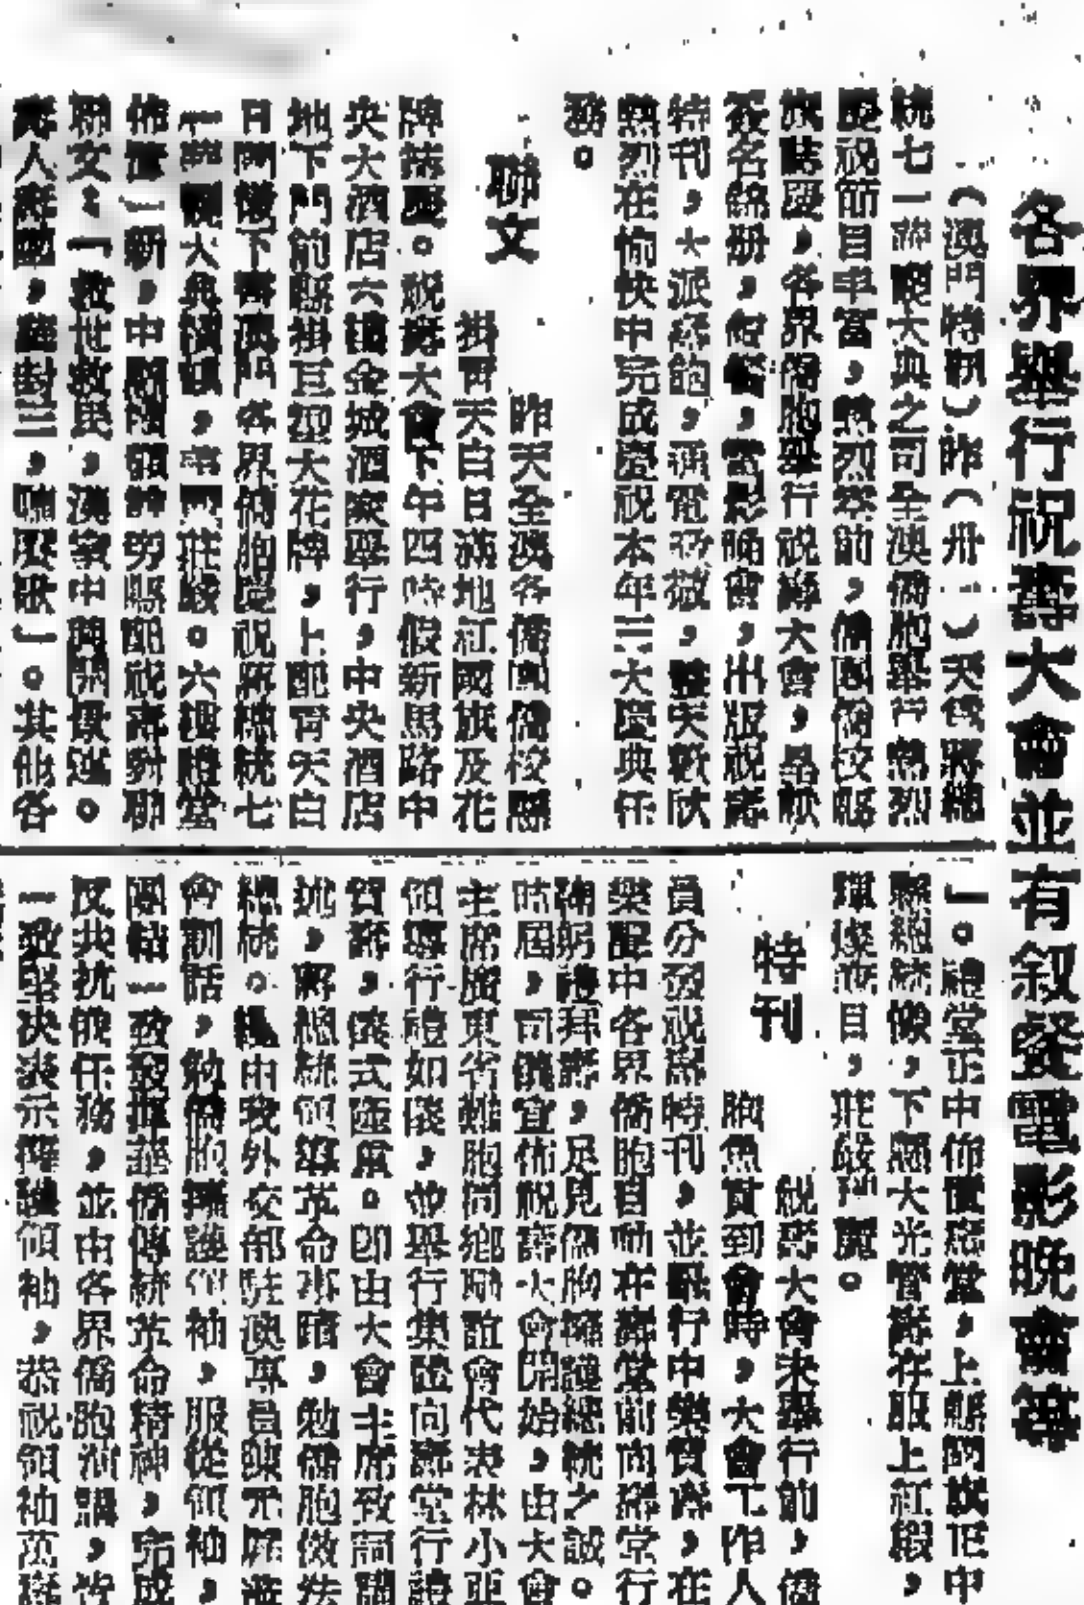 各界舉行祝壽大會並有敘餐電影晚會等
（澳門特訊）昨（卅一）天為蔣總
統七一華誕大典之司全澳僑胞舉行熱烈
慶祝節目丰富，熱烈空前，僑團僑校懸
旗誌慶，各界僑胞舉行祝壽大會，恭獻
簽名錦册，敘餐，電影晚會，出版祝壽
特刊，大派壽飽，通電致敬，整天歡欣
熱烈在愉快中完成慶祝本年三大慶典任
務。
聯文
昨天全澳各僑團僑校懸
掛青天白日滿地紅國旗及花
牌誌慶。祝壽大會下午四時假新馬路中
央大酒店六樓金城酒家舉行，中央酒店
地下門前懸掛巨型大花牌，上配青天白
日國徽下書澳門各界僑胞慶祝蔣總統七
一華誕大典橫額，莊嚴。六樓禮堂
佈置一新，中懸橫額許旁懸配祝壽對聯
聯文：「救世救民，漢家中興開景運。
壽人壽國，華封三，嵩歌」。其他各
」。禮堂正中佈置壽堂，上懸國旗正中
懸總統像，下懸大光管壽存服上紅緞，
輝煌奪目，莊嚴華麗。
特刊
祝壽大會未舉行前，僑
胞魚貫到會時，大會工作人
員分發祝壽特刊，並舉行中樂賀壽，在
樂聲中各界僑胞自動在壽堂前向壽堂行
鞠躬禮拜壽，足見僑胞擁護總統之誠。
時屆，司儀宣佈祝壽大會開始，由大會
主席廣東省難胞同鄉聯誼會代表林小亞
領導行禮如儀，並舉行集體向壽堂行禮
賀壽，儀式隆重。即由大會主席致詞闡
述，蔣總統領導革命事蹟，勉僑胞倣法
總統。復由我外交部駐澳專員
會訓話，勉僑胞擁護領袖，服從領袖，
團結一致發揮華僑傳統革命精神，完成
反共抗俄任務，並由各界僑胞演講，皆
一致堅決表示擁護領袖，恭祝領袖萬壽